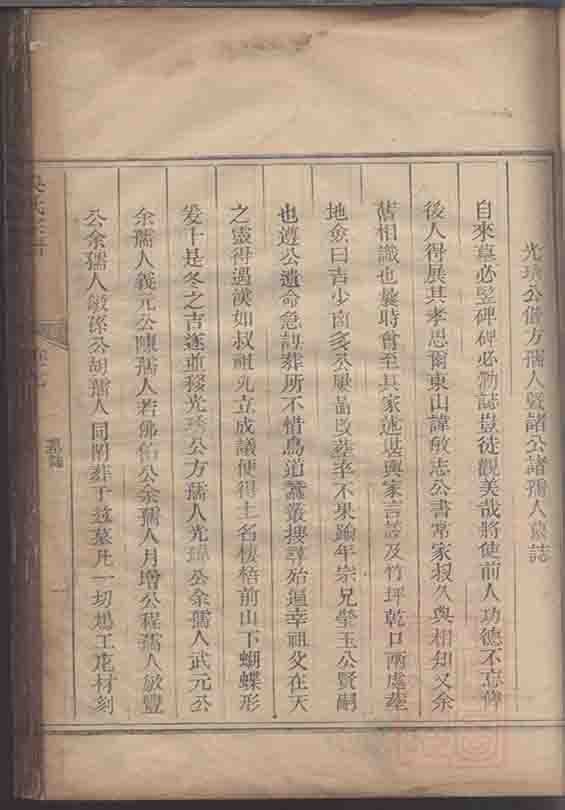 光琇公偕方孺人暨諸公諸孺人墓誌
自來墓必竪碑碑必勒誌豈徒觀美哉將使前人功德不忘俾
後人得展其孝思爾東山諱敏志公書常家叔久與相知又余
舊相識也曩時曾至其家述堪輿家言談及竹坪乾口兩處塋
地僉曰吉少凶多公屢啚改塟率不果踰年宗兄瑩玉公賢嗣
也遵公遺命急謀葬所不惜鳥道蠶叢搜尋殆遍幸祖父在天
之靈得遇漢如叔祖允立成議便得土名樓梧前山下蝴蝶形
爰卜是冬之吉遂並移光琇公方孺人光璋公余孺人武元公
余孺人義元公陳孺人若佛佑公余孺人月增公程孺人敏豐
公余孺人敏孫公胡孺人同附葬于茲墓凡一切塢工庀材刻
氏宗譜
墓誌